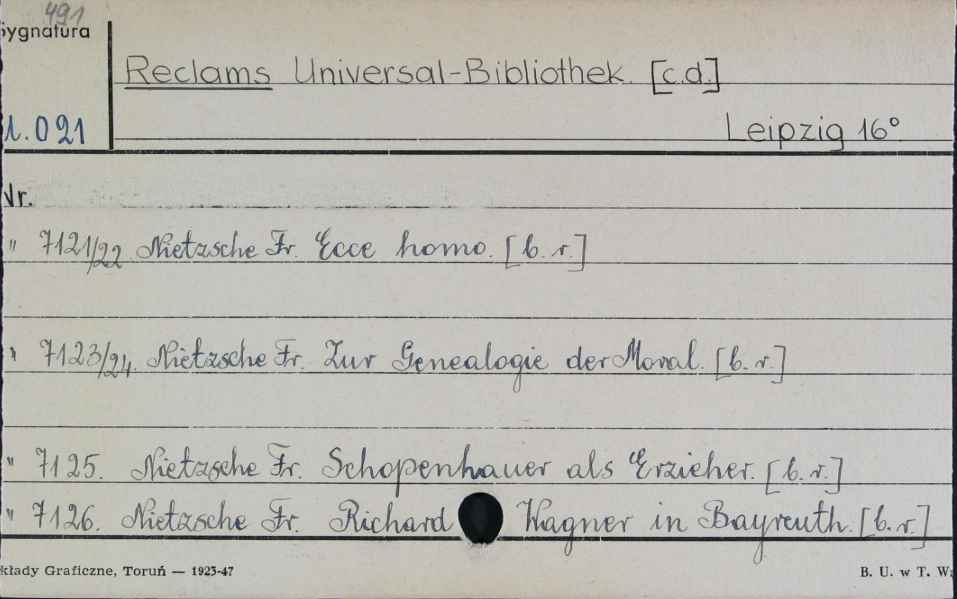 491
Sygnatura
Reclams Universal-Bibliothek. [c.d.]
1.021
Leipzig 16°
Nr.
" 7121/22 Nietzsche Fr. Ecce homo. [b. r.]
" 7123/24. Nietzsche Fr. Zur Genealogie der Moral. [b. r.]
" 7125. Nietzsche Fr. Schopenhauer als Erzieher. [b. r.]
" 7126. Nietzsche Fr. Richard Wagner in Bayreuth. [b. r.]
kłady Graficzne, Toruń — 1923-47
B. U. w T. W: